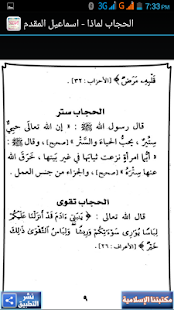 7:33 PM
الحجاب لماذا - اسماعيل المقدم
قَلْبِهِ، مَرَضٌ﴾ [الأحزاب : ٣٢] .
الحجاب ستر
قال رسول الله ﷺ : « إن الله تعالى حييٌّ
سِتِّيرٌ ، يحبُّ الحياءَ والسَّتْرَ » [صحيح] ، وقال ﷺ :
« أيُّما امرأةٍ نزعت ثيابَها في غير بيتها ، خَرَقَ اللهُ
عنها سِتْرَهُ » [صحيح] ، والجزاء من جنس العمل .
الحجاب تقوى
قال الله تعالى : ﴿ يَٰبَنِىٓ ءَادَمَ قَدْ أَنزَلْنَا عَلَيْكُمْ
لِبَاسًا يُوَٰرِى سَوْءَٰتِكُمْ وَرِيشًا ۖ وَلِبَاسُ ٱلتَّقْوَىٰ ذَٰلِكَ
خَيْرٌ﴾ [الأعراف : ٢٦] .
٩
مكتبتنا الإسلامية
نشر
التطبيق